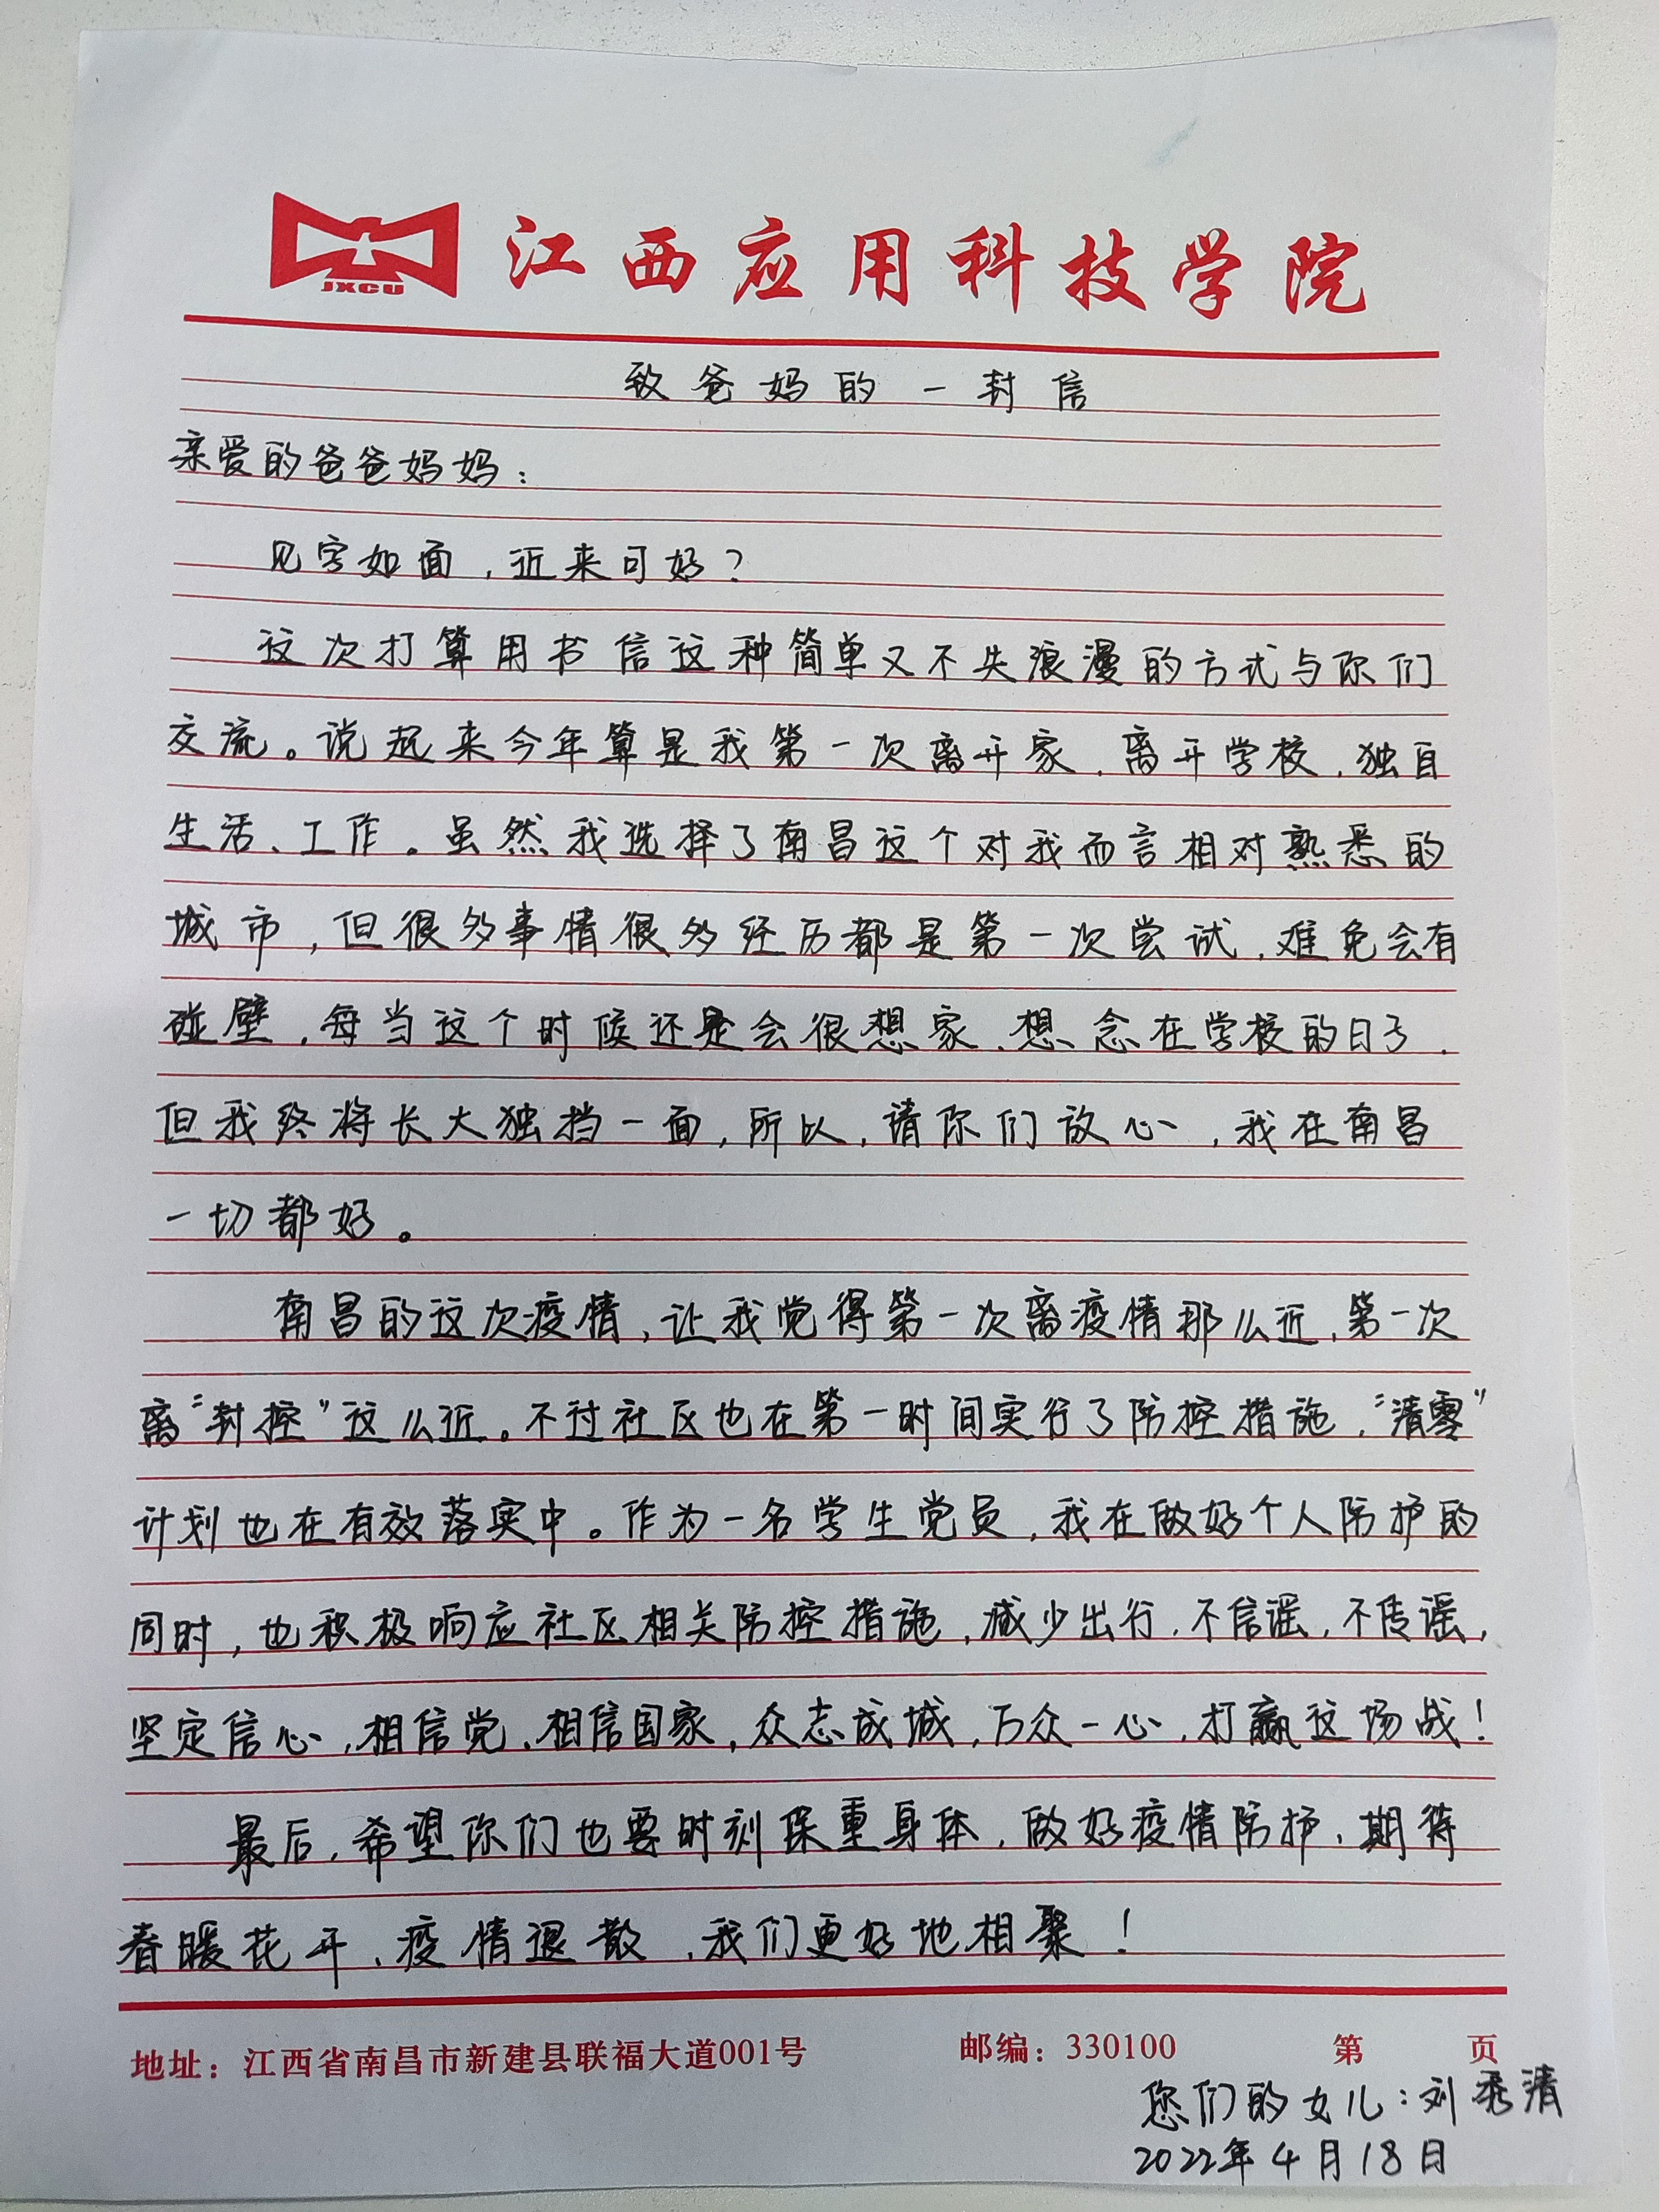 JXCU
江西应用科技学院
致爸妈的一封信
亲爱的爸爸妈妈:
见字如面,近来可好?
这次打算用书信这种简单又不失浪漫的方式与你们
交流。说起来今年算是我第一次离开家、离开学校,独自
生活、工作。虽然我选择了南昌这个对我而言相对熟悉的
城市,但很多事情很多经历都是第一次尝试,难免会有
碰壁,每当这个时候还是会很想家、想念在学校的日子.
但我终将长大独挡一面,所以,请你们放心,我在南昌
一切都好。
南昌的这次疫情,让我觉得第一次离疫情那么近,第一次
离“封控”这么近。不过社区也在第一时间实行了防控措施,“清零”
计划也在有效落实中。作为一名学生党员,我在做好个人防护的
同时,也积极响应社区相关防控措施,减少出行,不信谣,不传谣,
坚定信心,相信党、相信国家,众志成城,万众一心,打赢这场战!
最后,希望你们也要时刻保重身体,做好疫情防护,期待
春暖花开、疫情退散,我们更好地相聚!
地址:江西省南昌市新建县联福大道001号 邮编:330100 第 页
您们的女儿:刘秀清
2022年4月18日